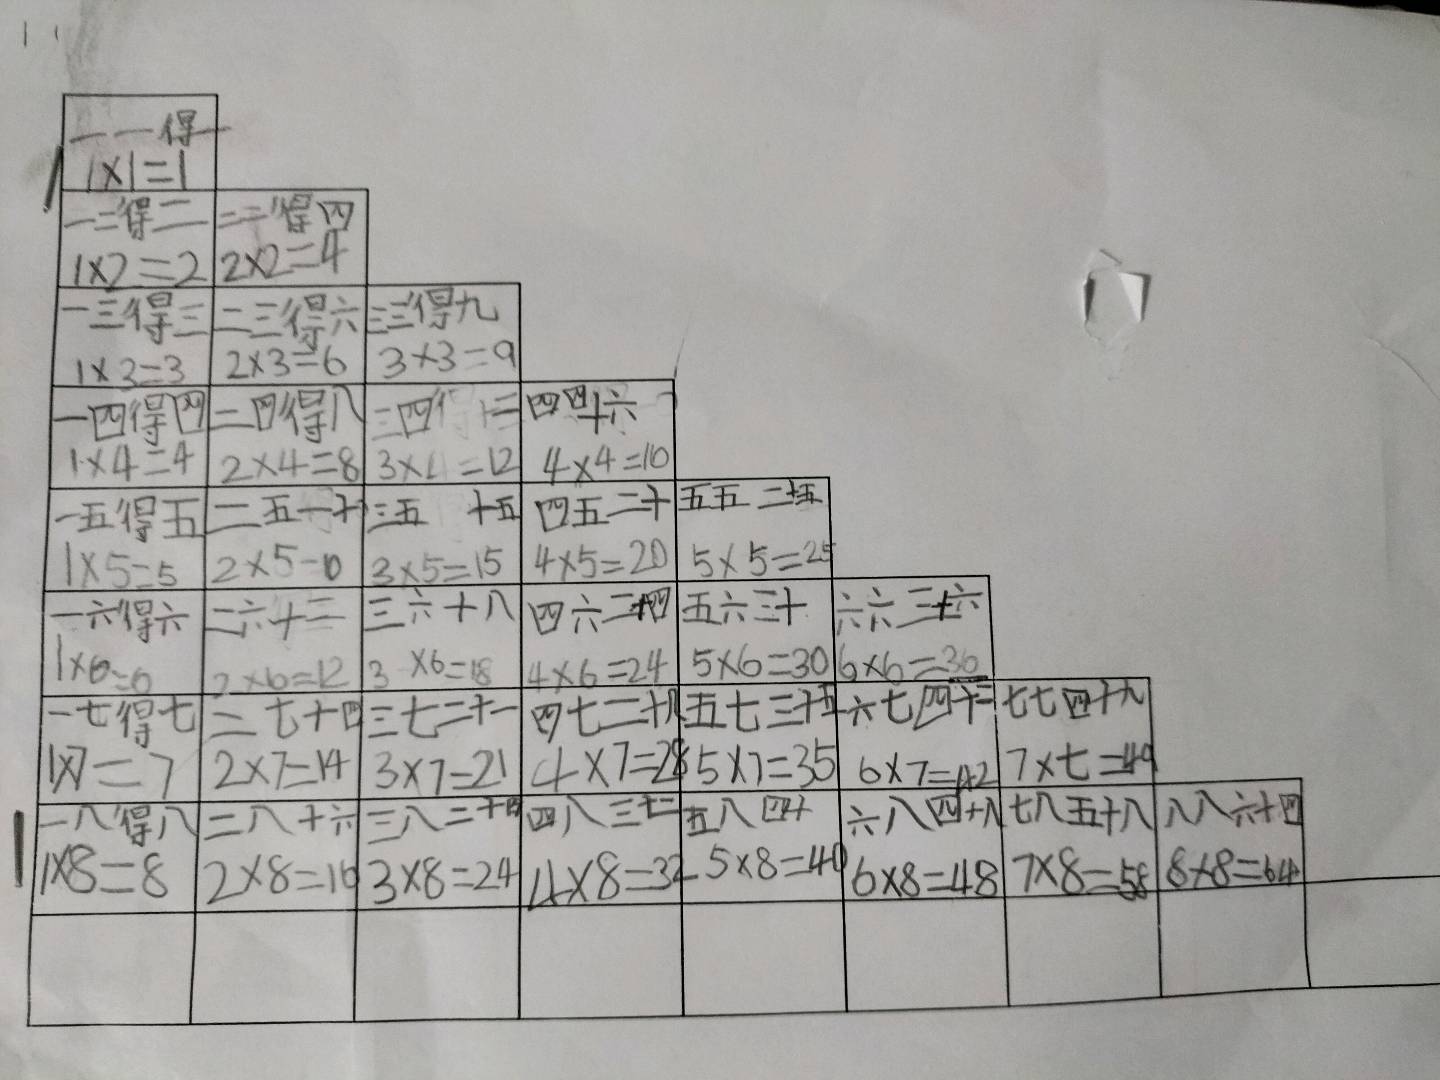 一一得一
1×1=1
一二得二 二二得四
1×2=2 2×2=4
一三得三 二三得六 三三得九
1×3=3 2×3=6 3×3=9
一四得四 二四得八 三四得十二 四四十六
1×4=4 2×4=8 3×4=12 4×4=16
一五得五 二五一十 三五 十五 四五二十 五五 二十五
1×5=5 2×5=10 3×5=15 4×5=20 5×5=25
一六得六 二六十二 三六十八 四六二十四 五六三十 六六三十六
1×6=6 2×6=12 3×6=18 4×6=24 5×6=30 6×6=36
一七得七 二七十四 三七二十一 四七二十八 五七三十五 六七四十二 七七四十九
1×7=7 2×7=14 3×7=21 4×7=28 5×7=35 6×7=42 7×七=49
一八得八 二八十六 三八二十四 四八三十二 五八四十 六八四十八 七八五十八 八八六十四
1×8=8 2×8=16 3×8=24 4×8=32 5×8=40 6×8=48 7×8=58 8×8=64